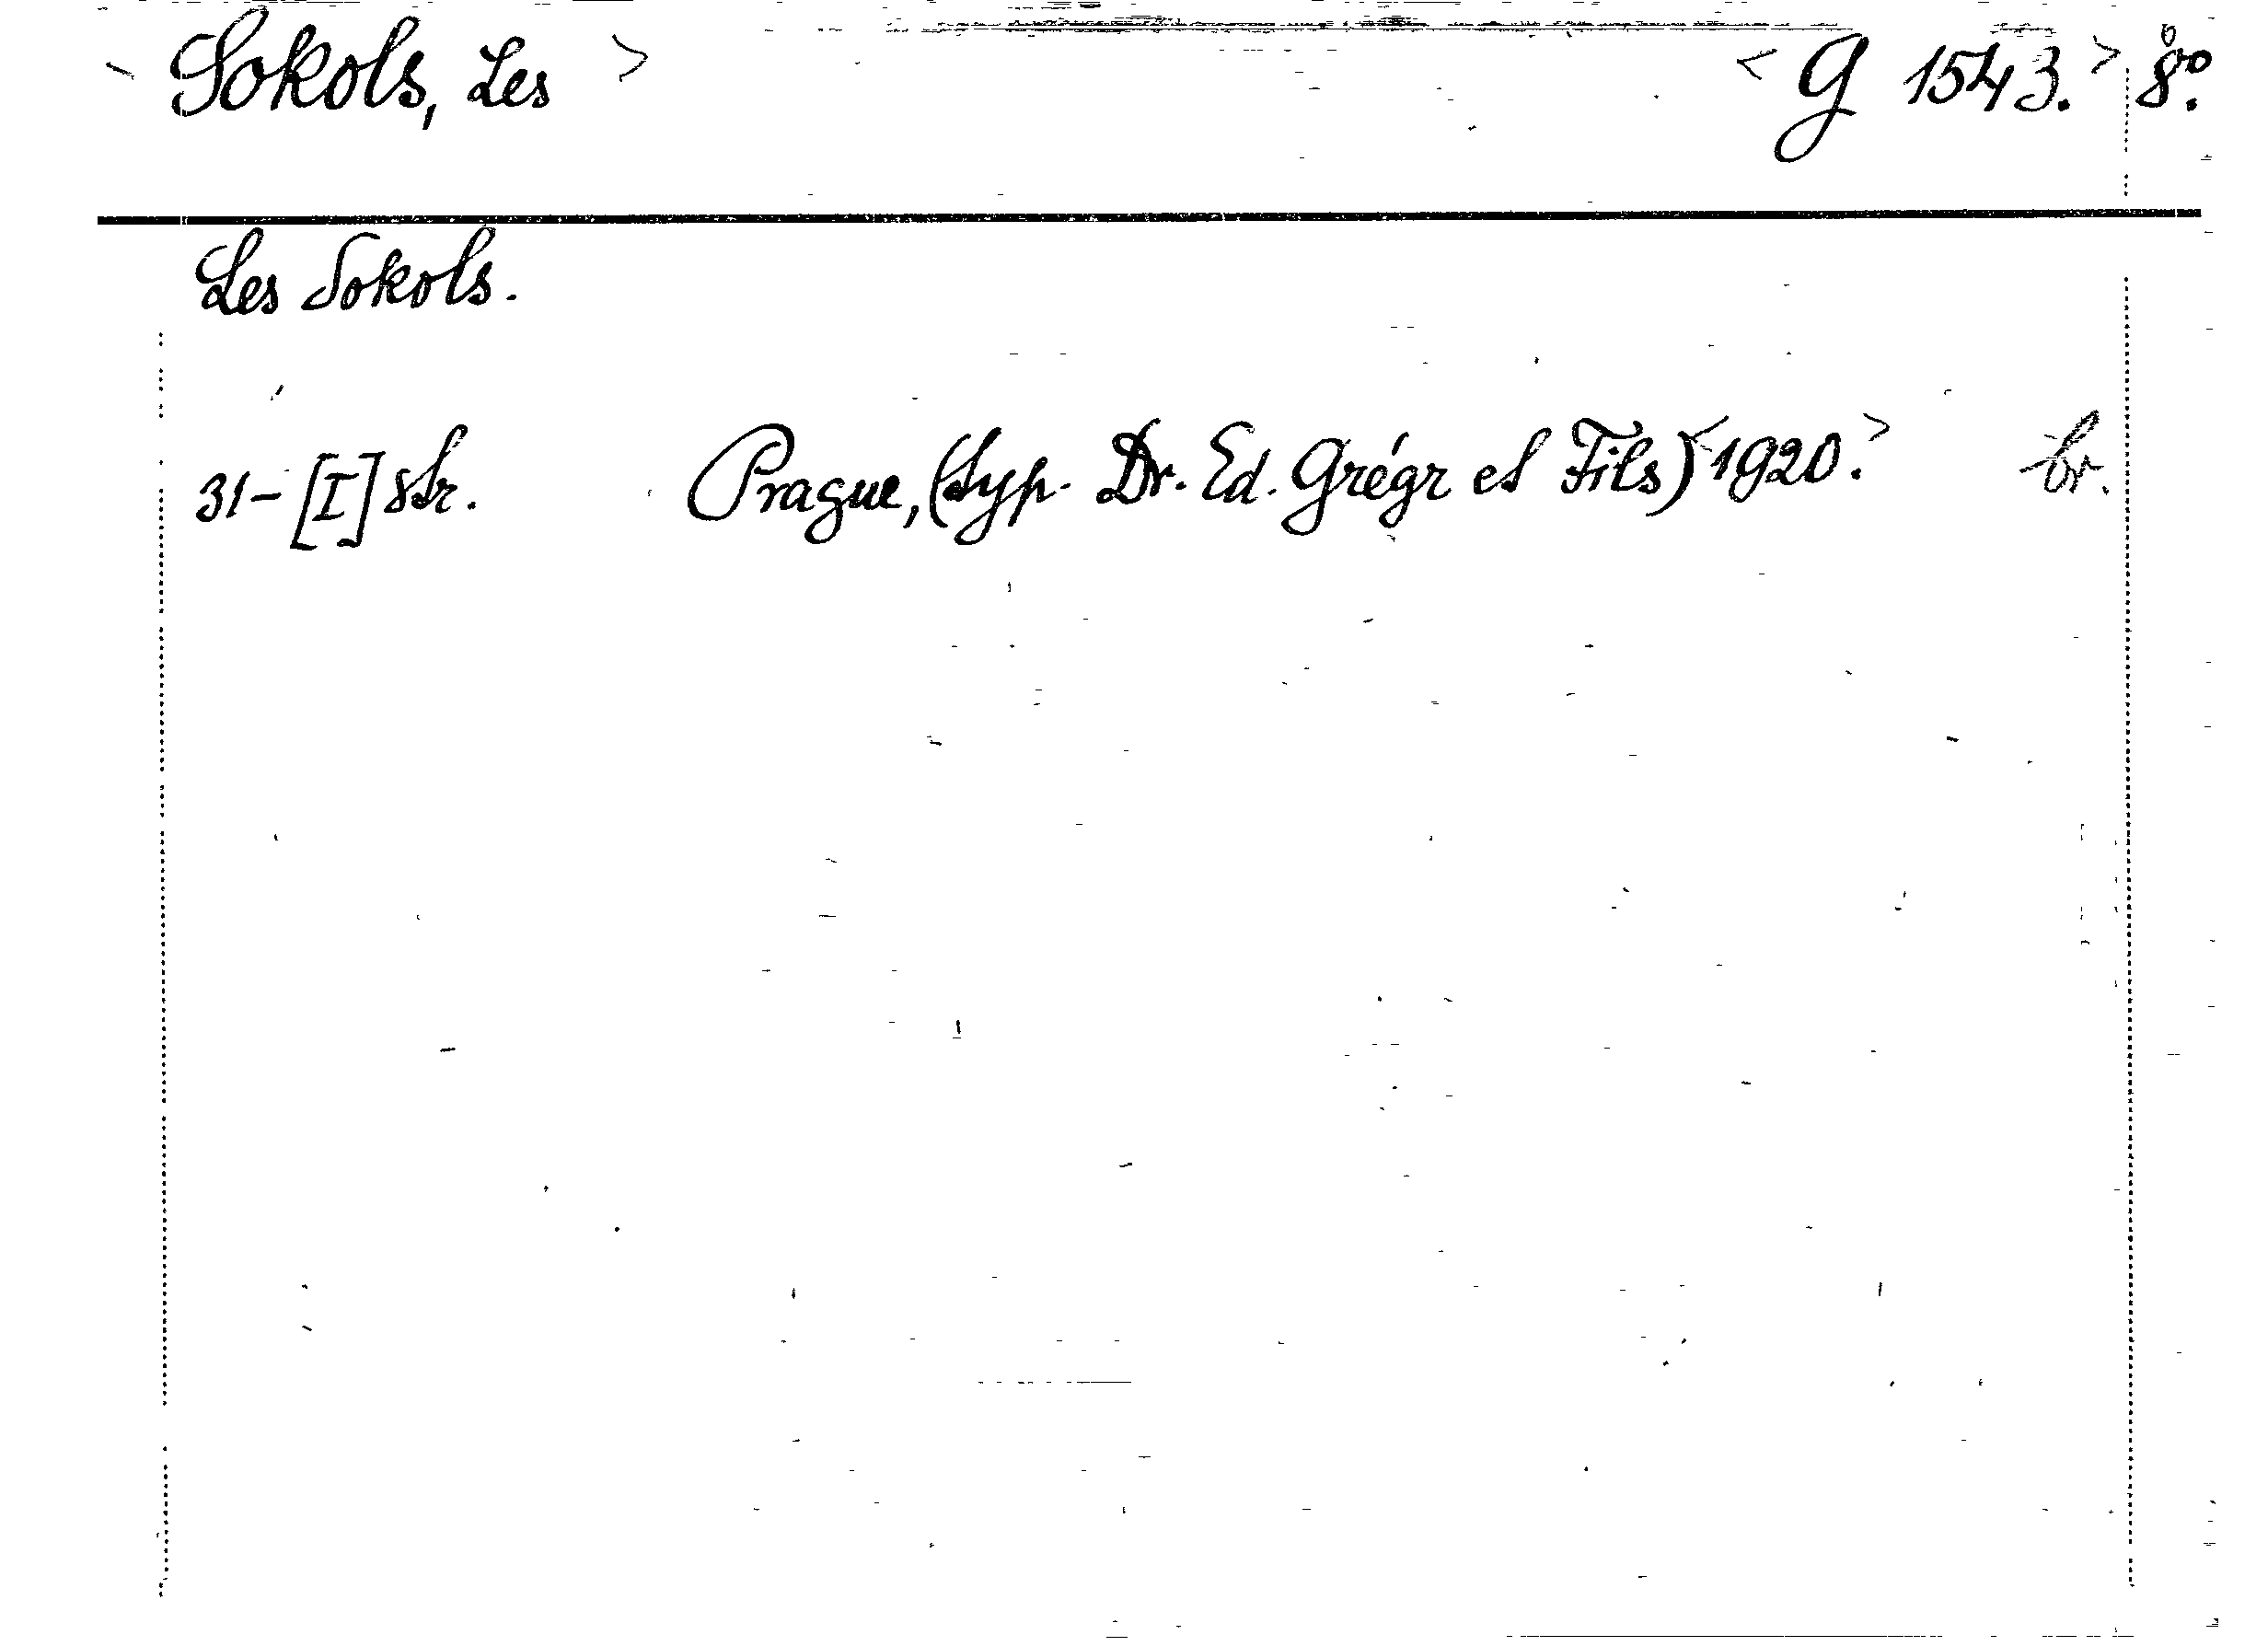 < Sokols, Les > < G 1543. > 8º.
Les Sokols.
31-[I] str. Prague, (typ. Dr. Ed. Grégr et Fils) <1920.> br.